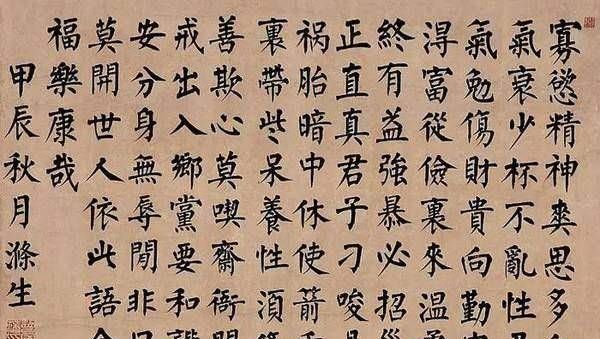 寡慾精神爽思多
氣衰少杯不亂性
氣勉傷財貴向勤
淂富從儉裏來溫
終有益強暴必招
正直真君子刁唆
祸胎暗中休使箭
裏帶些呆養性須
善欺心莫喫齋衙
戒出入鄉黨要和
安分身無辱閒非
莫開世人依此語
福樂康哉
甲辰秋月滌生